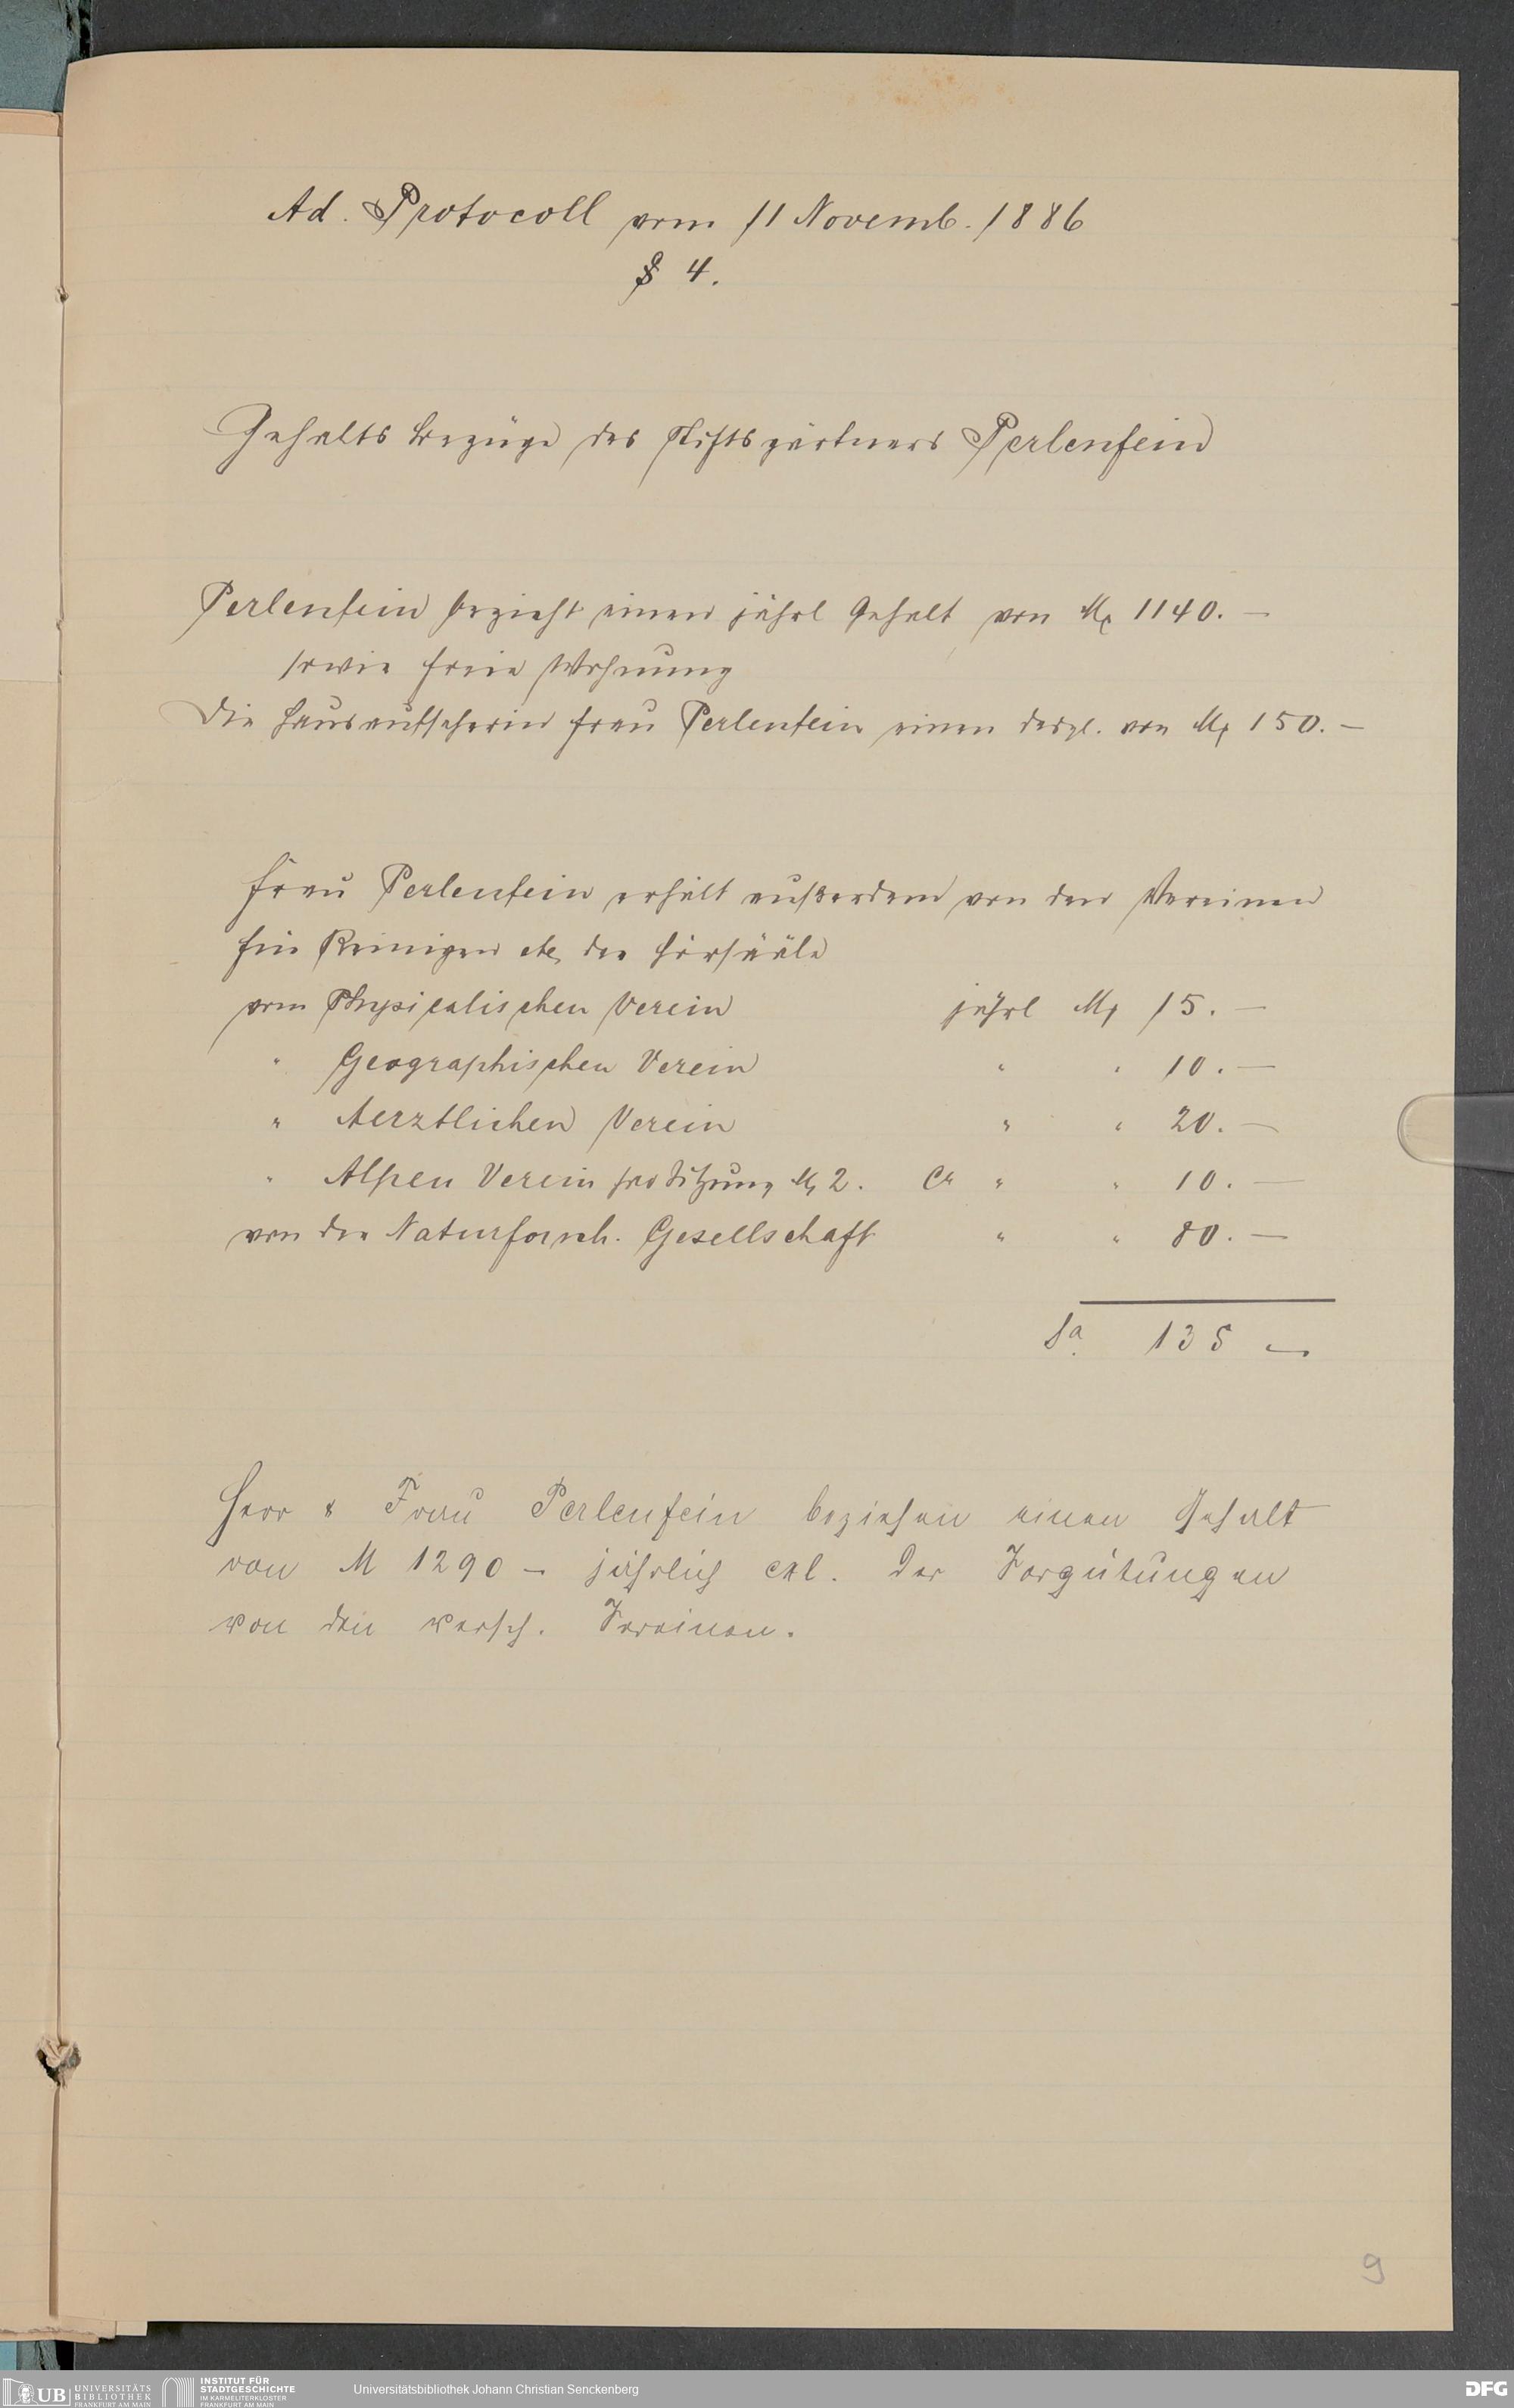 Ad. Protocoll vom 11 Novemb. 1886
§ 4.
Gehalts bezüge des Stiftsgärtners Perlenfein
Perlenfein bezieht einen jährl Gehalt von M 1140.—
sowie freie Wohnung
Die Hausaufseherin Frau Perlenfein einen desgl. von M 150.—
Frau Perlenfein erhält außerdem von den Vereinen
für Reinigen etc der Hörsääle
vom Physicalischen Verein jährl M 15.—
" Geographischen Verein " " 10.—
" Aerztlichen Verein " " 20.—
" Alpen Verein pro Sitzung M 2. Ca " " 10.—
von der Naturforsch. Gesellschaft " " 80.—
Sa. 135 —
Herr & Frau Perlenfein beziehen einen Gehalt
von M 1290 — jährlich exl. der Vergütungen
von den versch. Vereinen.
9
UB UNIVERSITÄTS
BIBLIOTHEK
FRANKFURT AM MAIN
INSTITUT FÜR
STADTGESCHICHTE
IM KARMELITERKLOSTER
FRANKFURT AM MAIN
Universitätsbibliothek Johann Christian Senckenberg
DFG